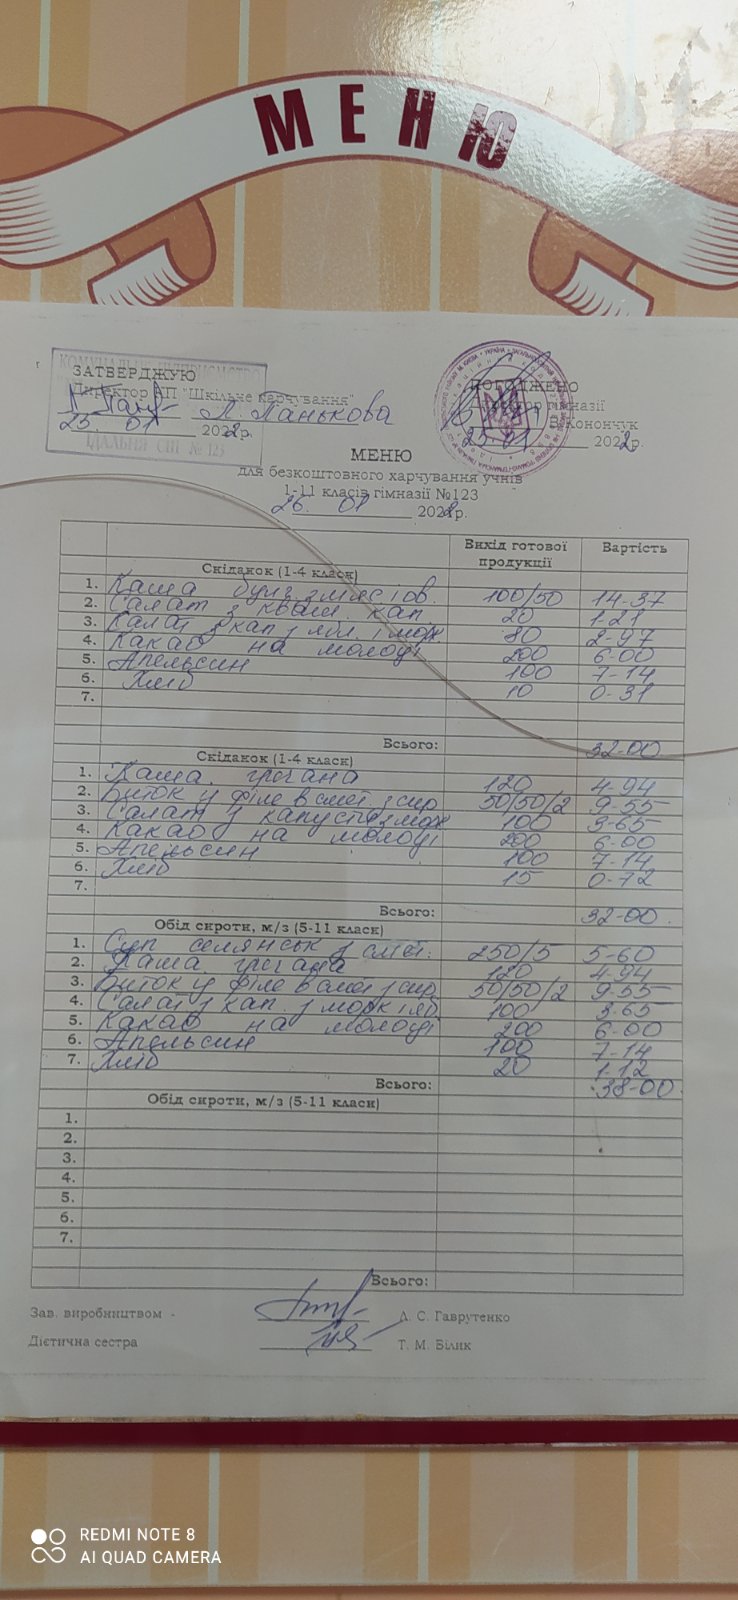 МЕНЮ
КОМУНАЛЬНЕ ПІДПРИЄМСТВО
ЗАТВЕРДЖУЮ
ПОГОДЖЕНО
Директор КП "Шкільне харчування"
гімназії
Л. Панькова
В. Конончук
25 01 2022р.
25.01 2022р.
ЇДАЛЬНЯ СШ № 123
МЕНЮ
для безкоштовного харчування учнів
1-11 класів гімназії №123
26 01 2022р.
Вихід готової продукції Вартість
Сніданок (1-4 класи)
1. Каша 100/50 14-37
2. Салат з кваш. кап. 20 1-21
3. Салат з кап з ябл. і мор 80 2-97
4. Какао на молоці 200 6-00
5. Апельсин 100 7-14
6. Хліб 10 0-31
7.
Всього: 32-00
Сніданок (1-4 класи)
1. Каша гречана 120 4-94
2. Биток у філе в смет з сир 50/50/2 9-55
3. Салат з капусти з мор 100 3-65
4. Какао на молоці 200 6-00
5. Апельсин 100 7-14
6. Хліб 15 0-72
7.
Всього: 32-00.
Обід сироти, м/з (5-11 класи)
1. Суп селянськ з смет. 250/5 5-60
2. Каша гречана 120 4-94
3. Биток у філе в смет з сир 50/50/2 9-55
4. Салат з кап. з морк і яб 100 3-65
5. Какао на молоці 200 6-00
6. Апельсин 100 7-14
7. Хліб 20 1-12
Всього: 38-00.
Обід сироти, м/з (5-11 класи)
1.
2.
3.
4.
5.
6.
7.
Всього:
Зав. виробництвом - Л. С. Гаврутенко
Дієтична сестра Т. М. Білик
REDMI NOTE 8
AI QUAD CAMERA